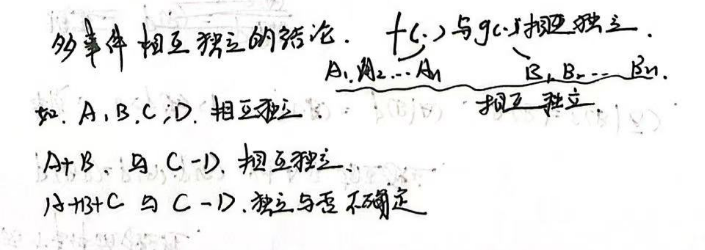 多事件相互独立的结论. f(·)与g(·)相互独立.
A₁, A₂... Aₙ B₁, B₂... Bₙ.
相互独立.
如. A, B, C, D. 相互独立.
A+B. 与 C-D. 相互独立.
A+B+C 与 C-D. 独立与否不确定